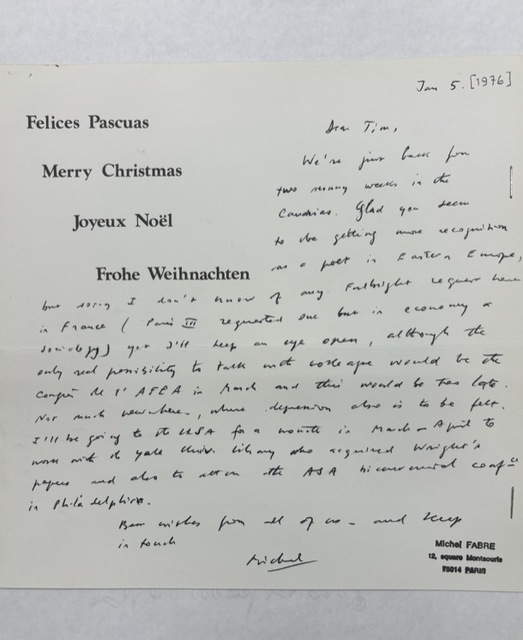 Jan 5. [1976]
Felices Pascuas
Merry Christmas
Joyeux Noël
Frohe Weihnachten
Dear Tim,
We're just back from
two sunny weeks in the
Canaries. Glad you seem
to be getting more recognition
as a poet in Eastern Europe,
but sorry I don't know of any Fulbright request here
in France (Paris III requested one but in economy &
sociology) yet I'll keep an eye open, although the
only real possibility to talk with colleague would be the
Congrès de l'AFEA in March and this would be too late.
Not much new here, where depression also is to be felt.
I'll be going to the USA for a month in March-April to
work with the Yale Univ. library who acquired Wright's
papers and also to attend the ASA bicentennial confce
in Philadelphia.
Best wishes from all of us - and keep
in touch
Michel
Michel FABRE
12, square Montsouris
75014 PARIS